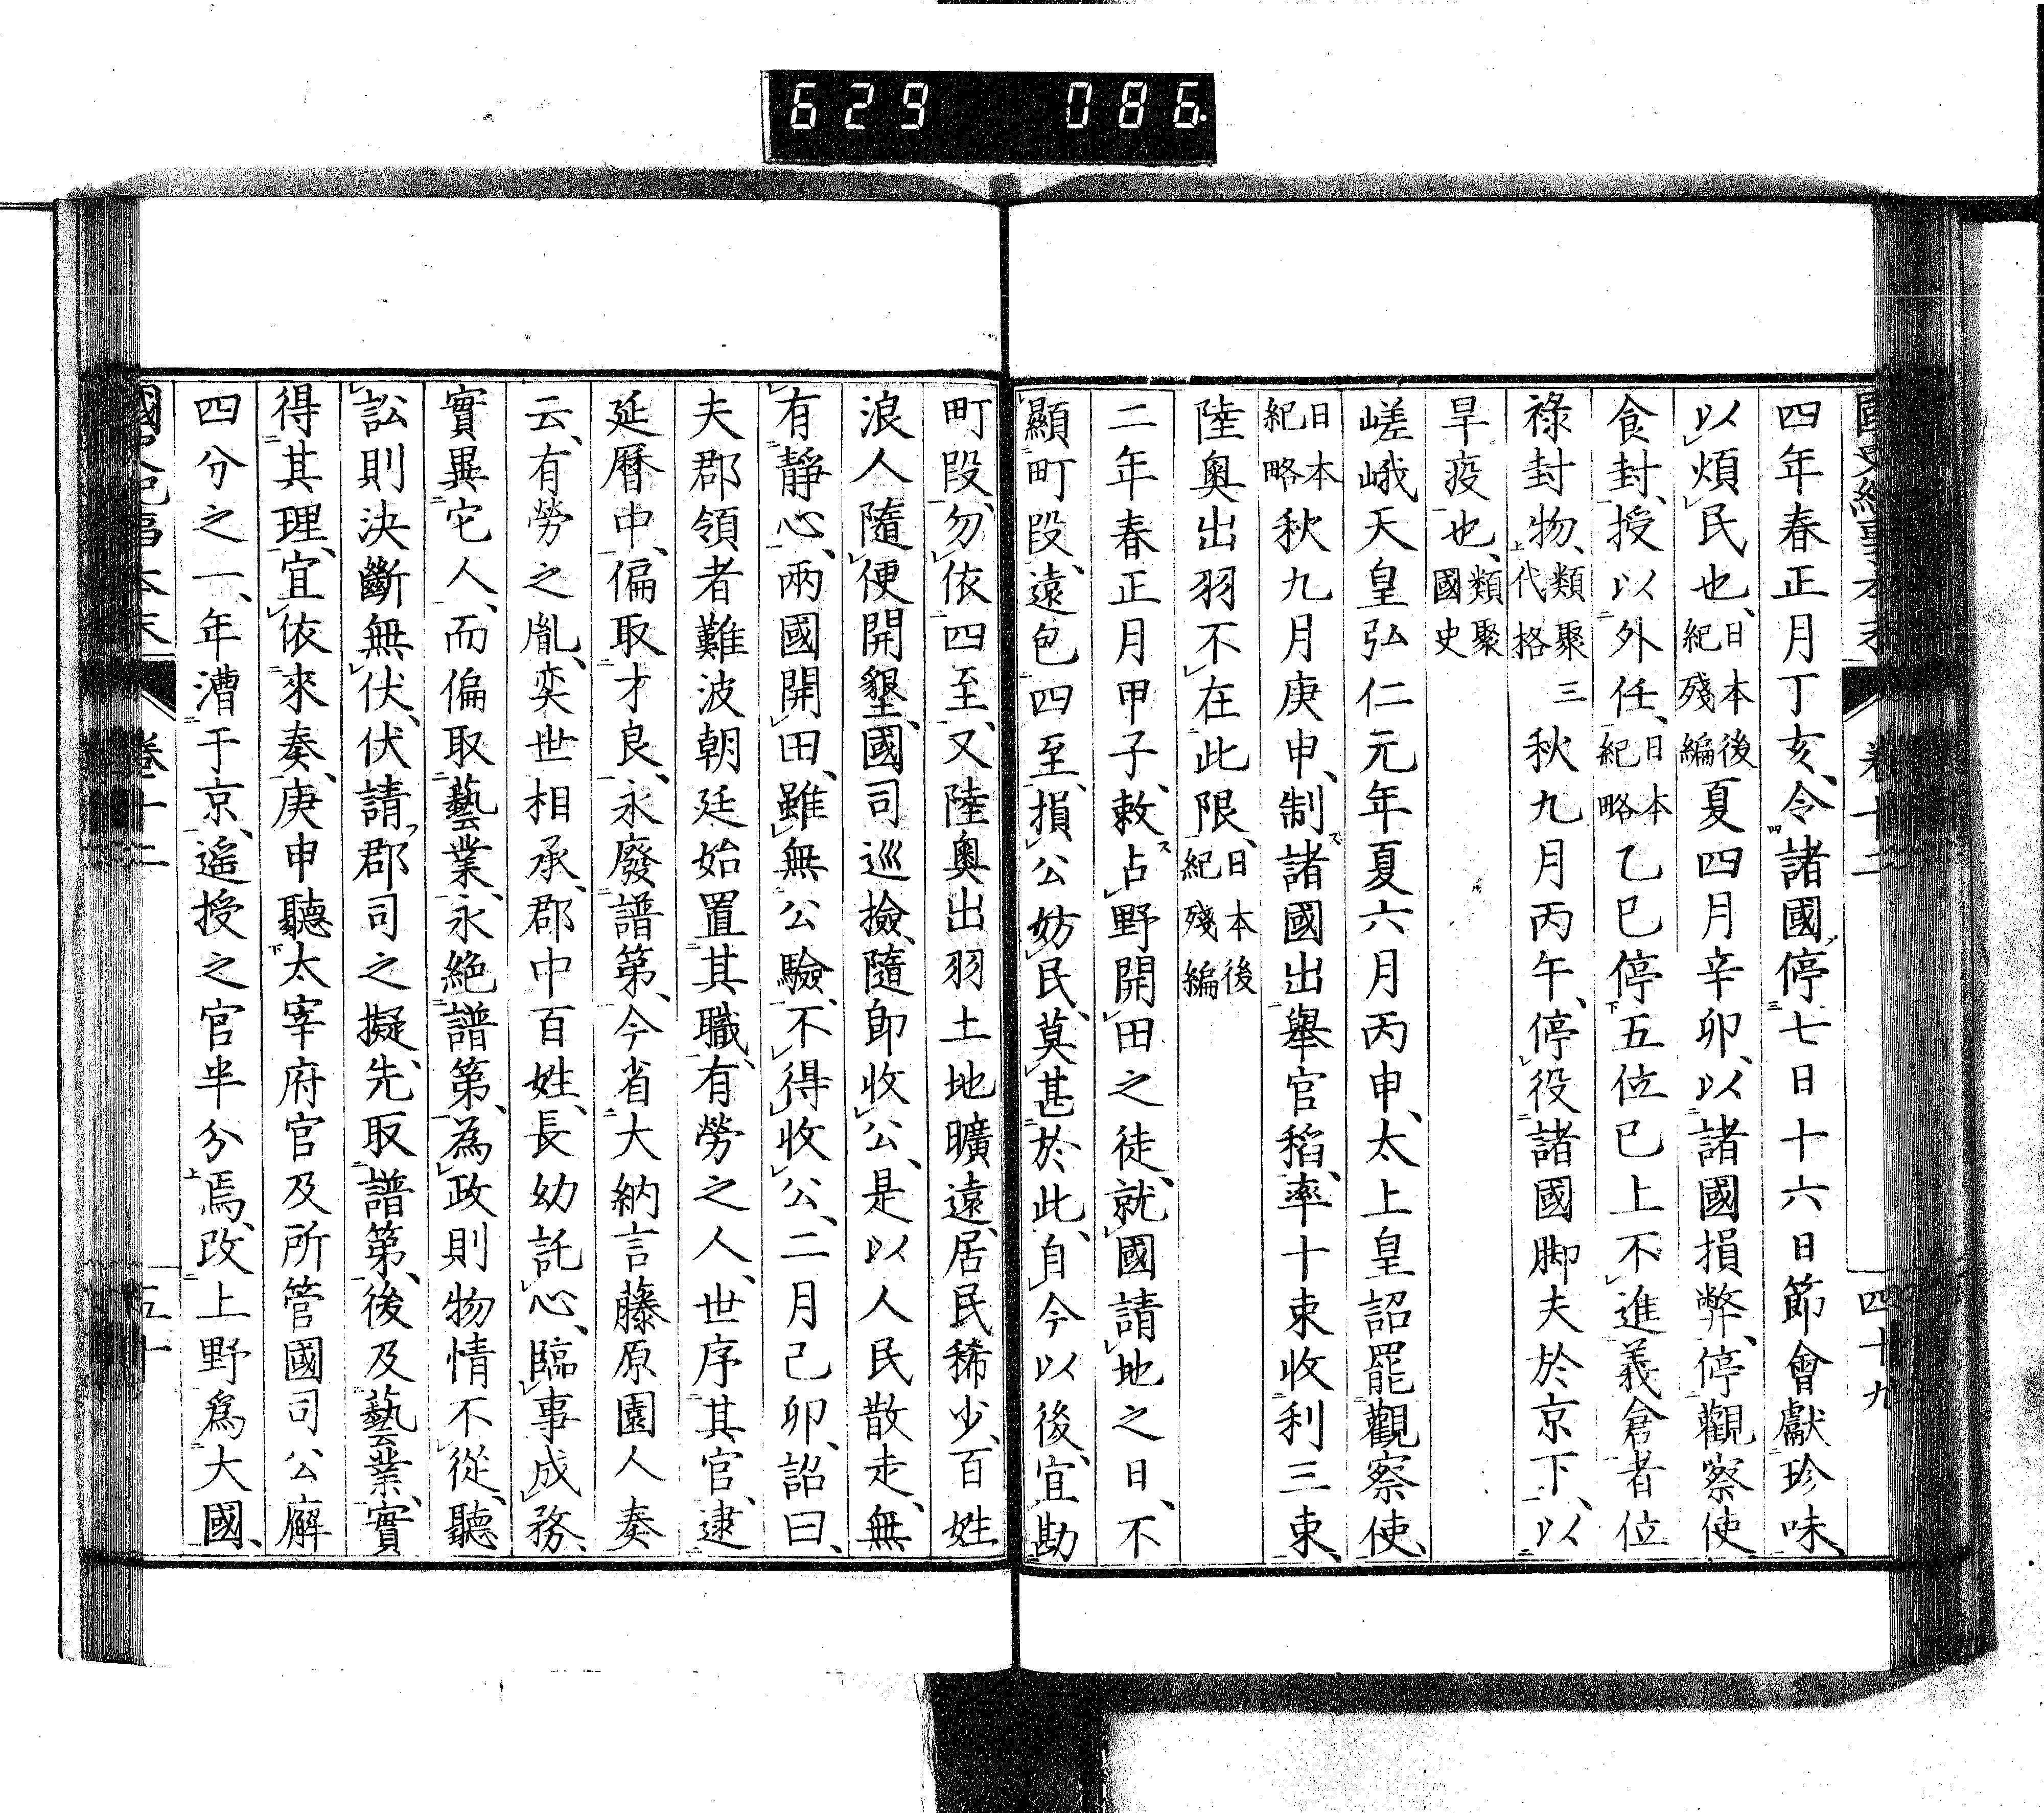 629 086
國史紀事本末 卷十二 四十九
四年春正月丁亥、令諸國停七日十六日節會獻珍味、
以煩民也、日本後紀殘編夏四月辛卯、以諸國損弊、停觀察使
食封、授以外任、日本紀略乙巳停五位已上不進義倉者位
祿封物、類聚三代格秋九月丙午、停役諸國脚夫於京下、以
旱疫也、類聚國史
嵯峨天皇弘仁元年夏六月丙申、太上皇詔罷觀察使、
日本紀略秋九月庚申、制諸國出舉官稻、率十束收利三束、
陸奧出羽不在此限、日本後紀殘編
二年春正月甲子、敕占野開田之徒、就國請地之日、不
顯町段、遠包四至、損公妨民、莫甚於此、自今以後、宜勘
町段、勿依四至、又陸奧出羽土地曠遠、居民稀少、百姓
浪人隨便開墾、國司巡撿、隨卽收公、是以人民散走、無
有靜心、兩國開田、雖無公驗、不得收公、二月己卯、詔曰、
夫郡領者難波朝廷始置其職、有勞之人、世序其官、逮
延曆中、偏取才良、永廢譜第、今省大納言藤原園人奏
云、有勞之胤、奕世相承、郡中百姓、長幼託心、臨事成務、
實異它人、而偏取藝業、永絕譜第、為政則物情不從、聽
訟則決斷無伏、伏請郡司之擬、先取譜第、後及藝業、實
得其理、宜依來奏、庚申聽太宰府官及所管國司公廨
四分之一、年漕于京、遙授之官半分焉、改上野爲大國、
國史紀事本末 卷十二 五十